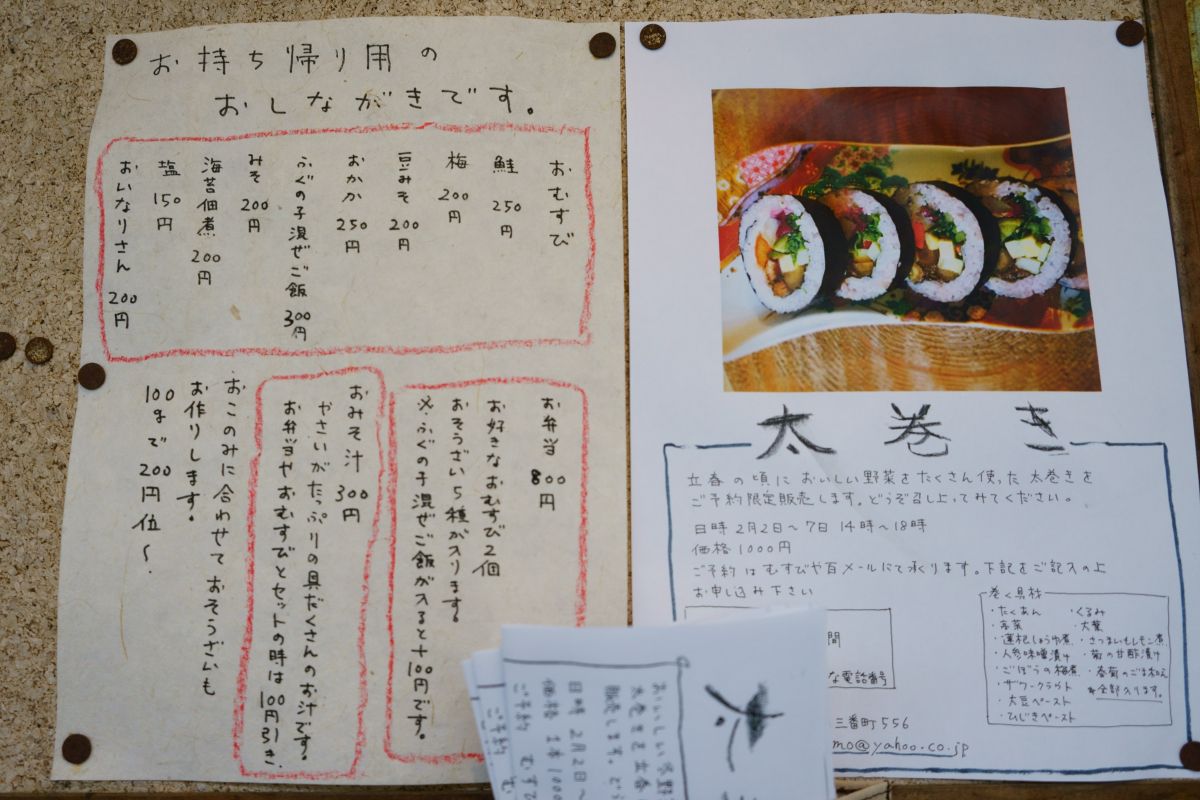 お持ち帰り用の
おしながきです。
おむすび
鮭 250円
梅 200円
豆みそ 200円
おかか 250円
ふぐの子混ぜご飯 300円
みそ 200円
海苔佃煮 200円
塩 150円
おいなりさん 200円
お弁当 800円
お好きなおむすび2個
おそうざい5種が入ります。
※ふぐの子混ぜご飯が入ると+100円です。
おみそ汁 300円
やさいがたっぷりの具だくさんのお汁です。
お弁当やおむすびとセットの時は100円引き.
おこのみに合わせておそうざいも
お作りします。
100gまで200円位〜.
太巻き
立春の頃においしい野菜をたくさん使った太巻きを
ご予約限定販売します。どうぞ召し上ってみてください。
日時 2月2日〜7日 14時〜18時
価格 1000円
ご予約はむすびや百メールにて承ります。下記をご記入の上
お申し込み下さい
巻く具材
・たくあん
・青菜
・蓮根しょうゆ煮
・人参味噌漬け
・ごぼうの梅煮
・ザワークラウト
・大豆ペースト
・ひじきペースト
・くるみ
・大葉
・さつまいもレモン煮
・菊の甘酢漬け
・春菊のごま和え
*全部入ります。
間
な電話番号
三番町556
mo@yahoo.co.jp
太
おいしい
太巻きを立春
販売します。どう
日時 2月2日〜
価格 1本1000
ご予約 むすび
ご予約